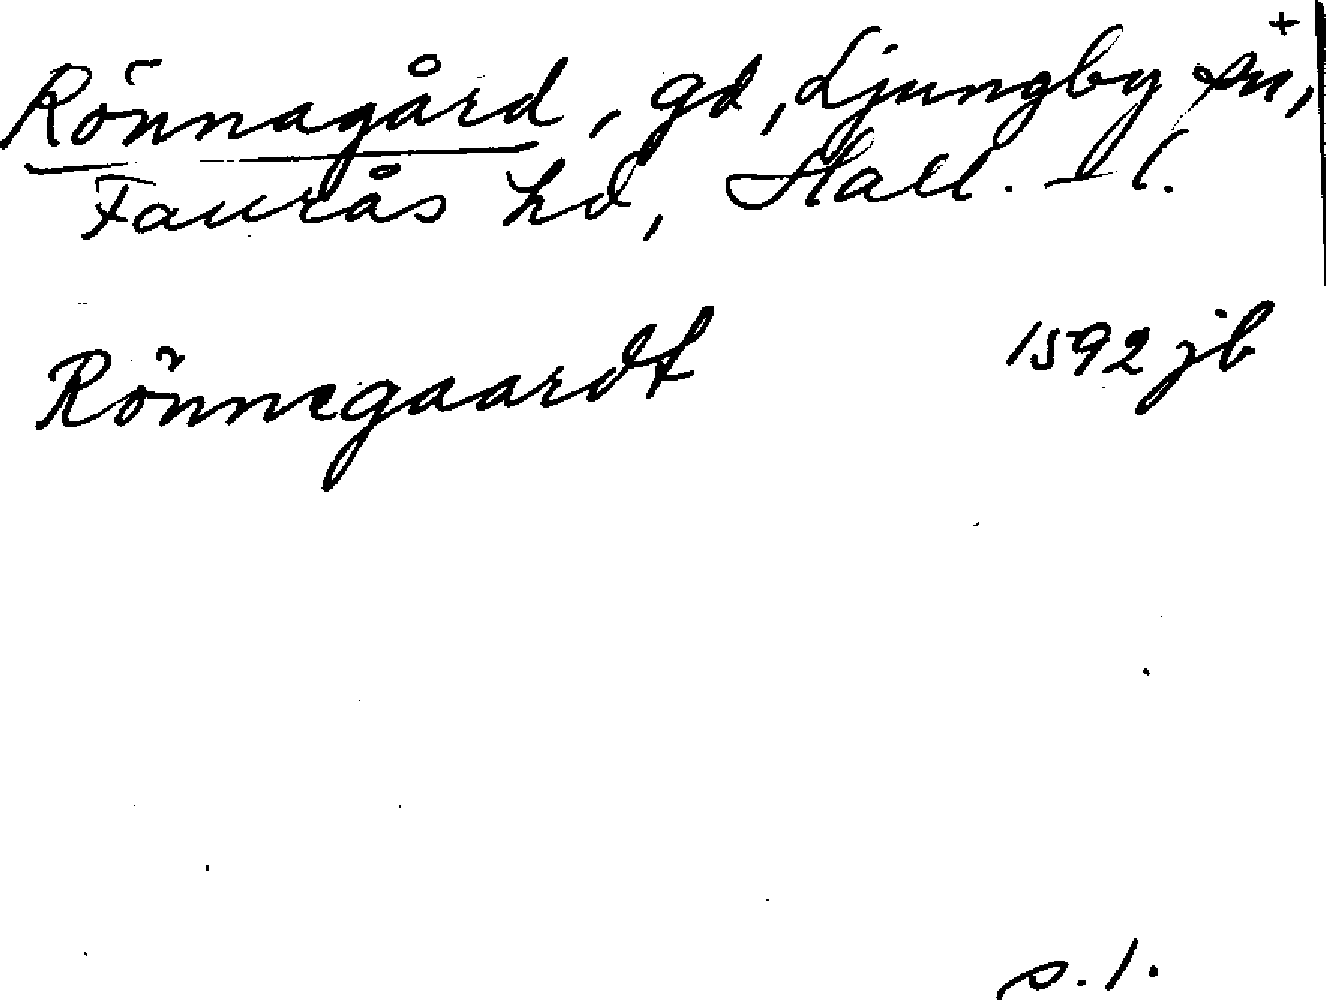 +
Rönnagård, gd, Ljungby sn,
Faurås hd, Hall. l.
Rönnegaardt 1592 jb
s. 1.